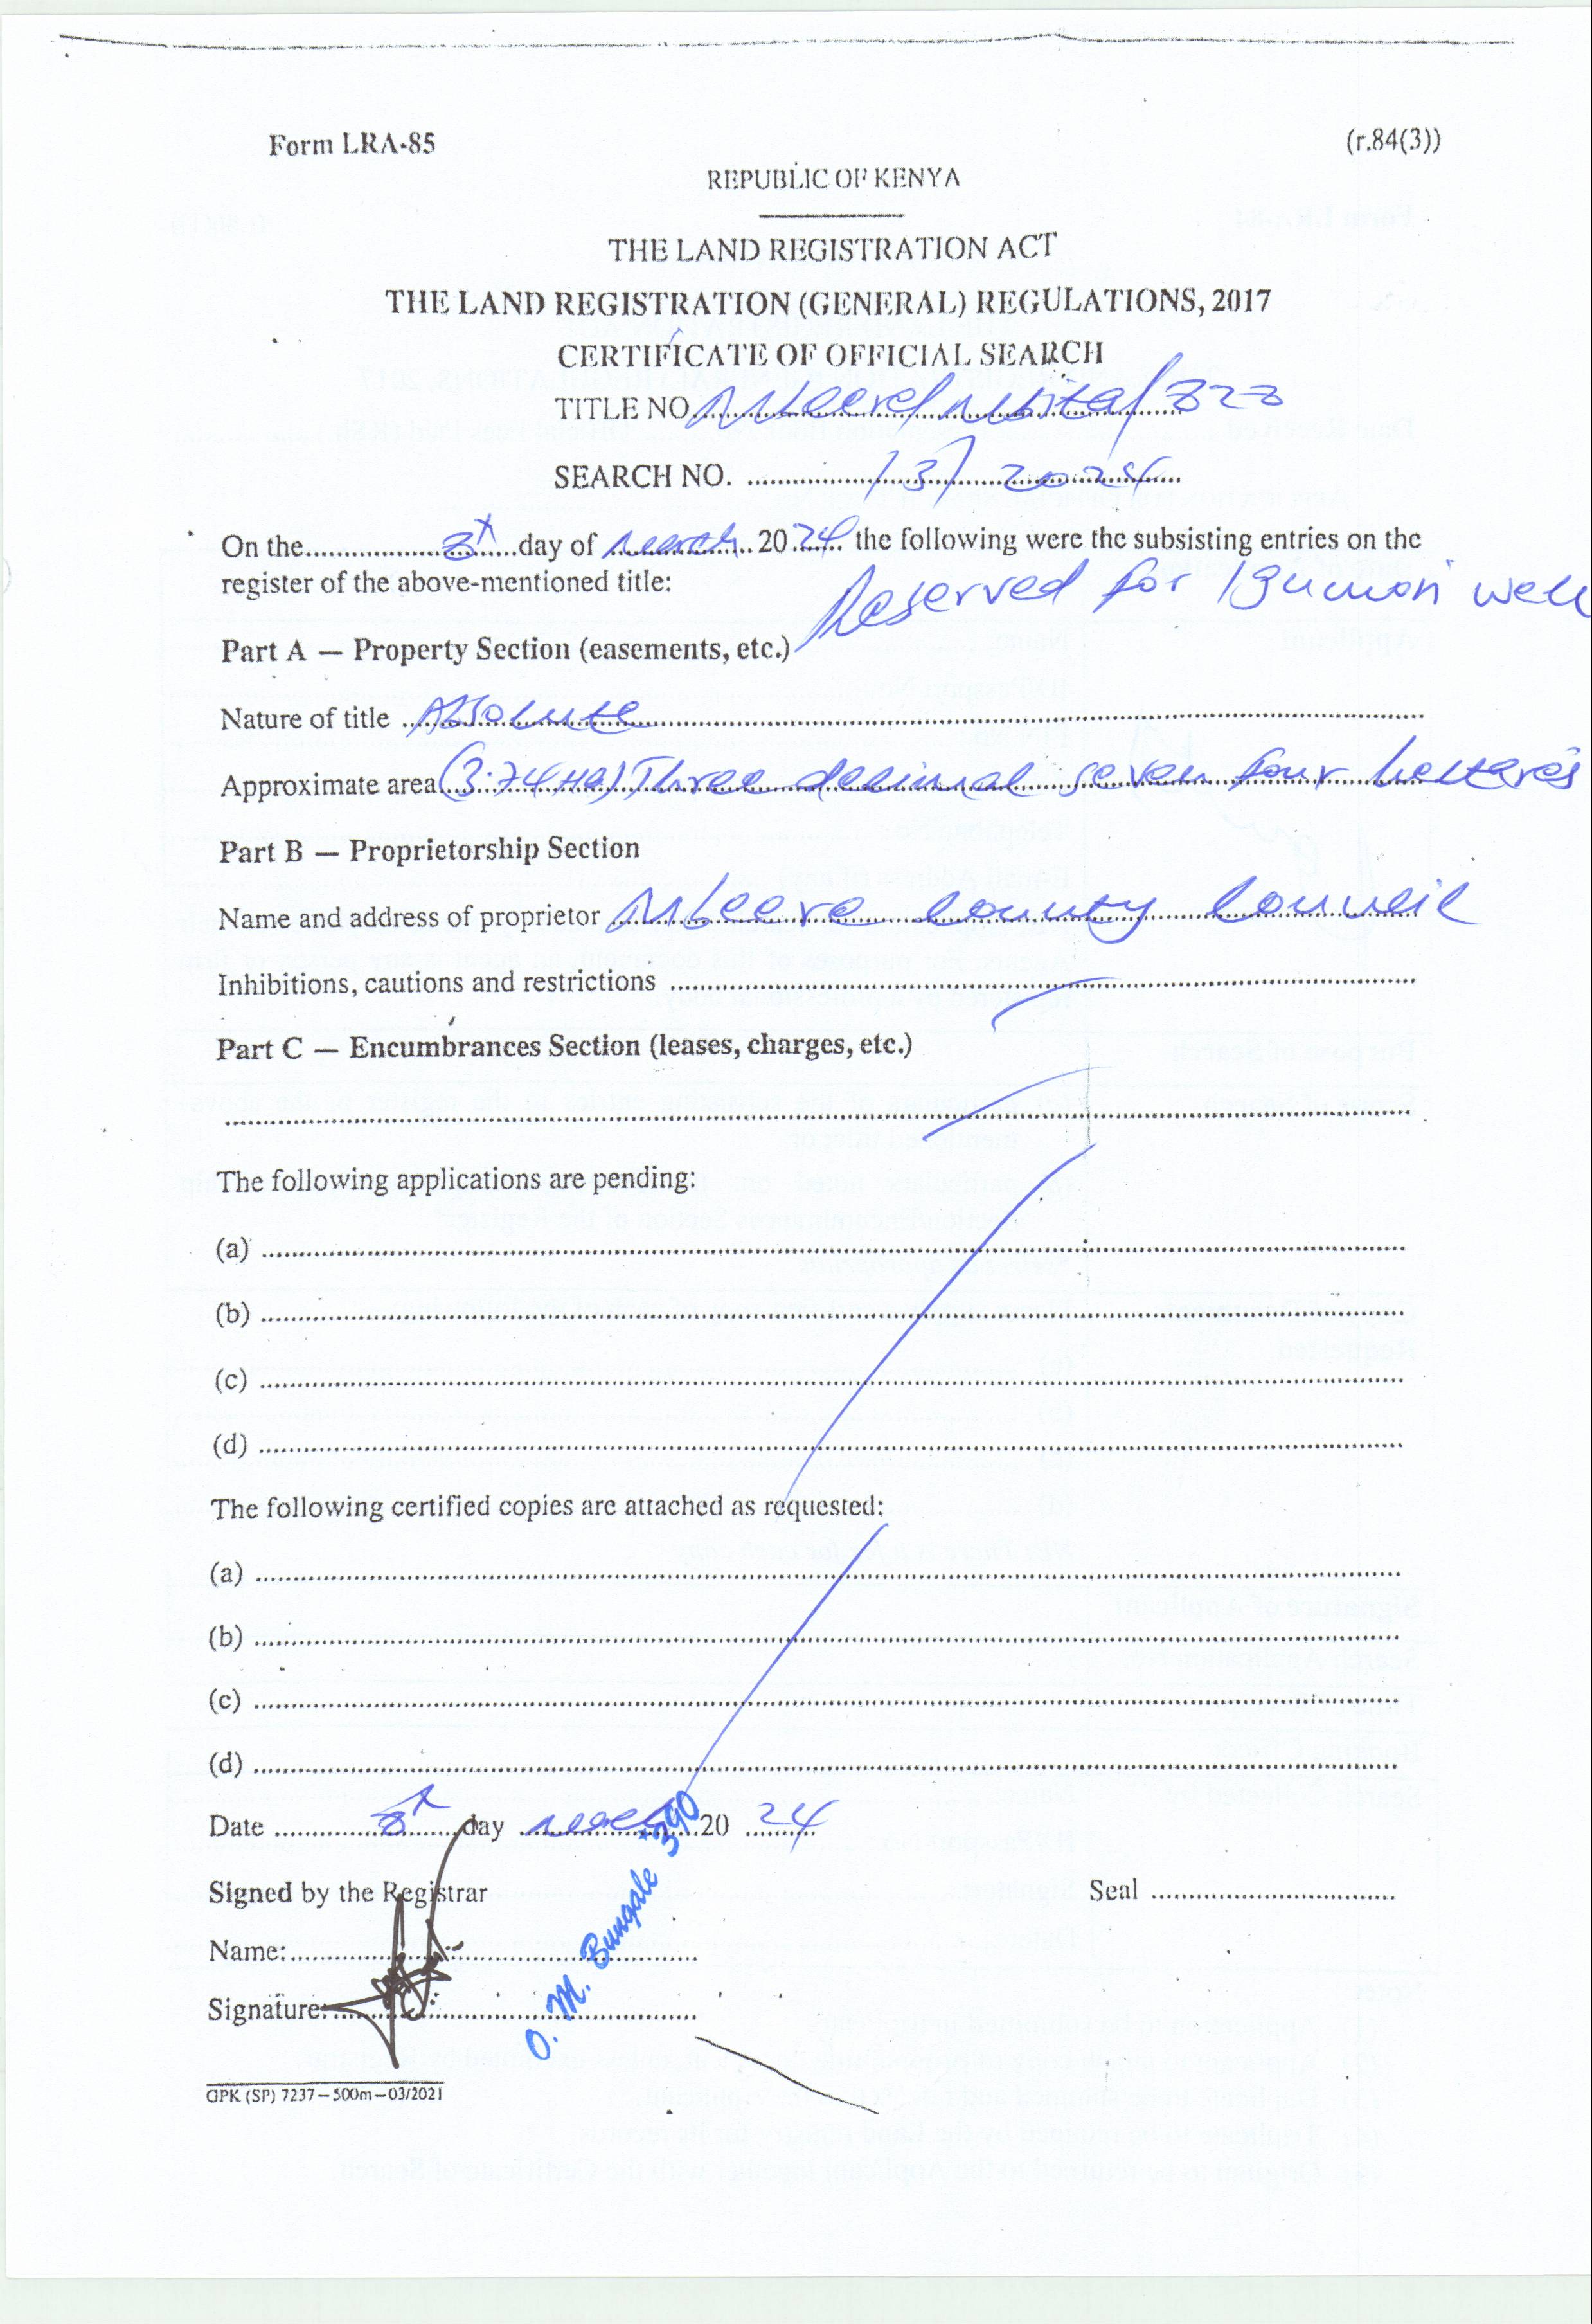 Form LRA-85 (r.84(3))
REPUBLIC OF KENYA
THE LAND REGISTRATION ACT
THE LAND REGISTRATION (GENERAL) REGULATIONS, 2017
CERTIFICATE OF OFFICIAL SEARCH
TITLE NO.
SEARCH NO. 2024
On the day of March 2024 the following were the subsisting entries on the
register of the above-mentioned title:
Reserved for
Part A — Property Section (easements, etc.)
Nature of title Absolute
Approximate area (3.74 HA) Three decimal seven four
Part B — Proprietorship Section
Name and address of proprietor County Council
Inhibitions, cautions and restrictions
Part C — Encumbrances Section (leases, charges, etc.)
The following applications are pending:
(a)
(b)
(c)
(d)
The following certified copies are attached as requested:
(a)
(b)
(c)
(d)
Date day March 20 24
Signed by the Registrar Seal
Name:
Signature:
O. M. Bungale *390
GPK (SP) 7237—500m—03/2021